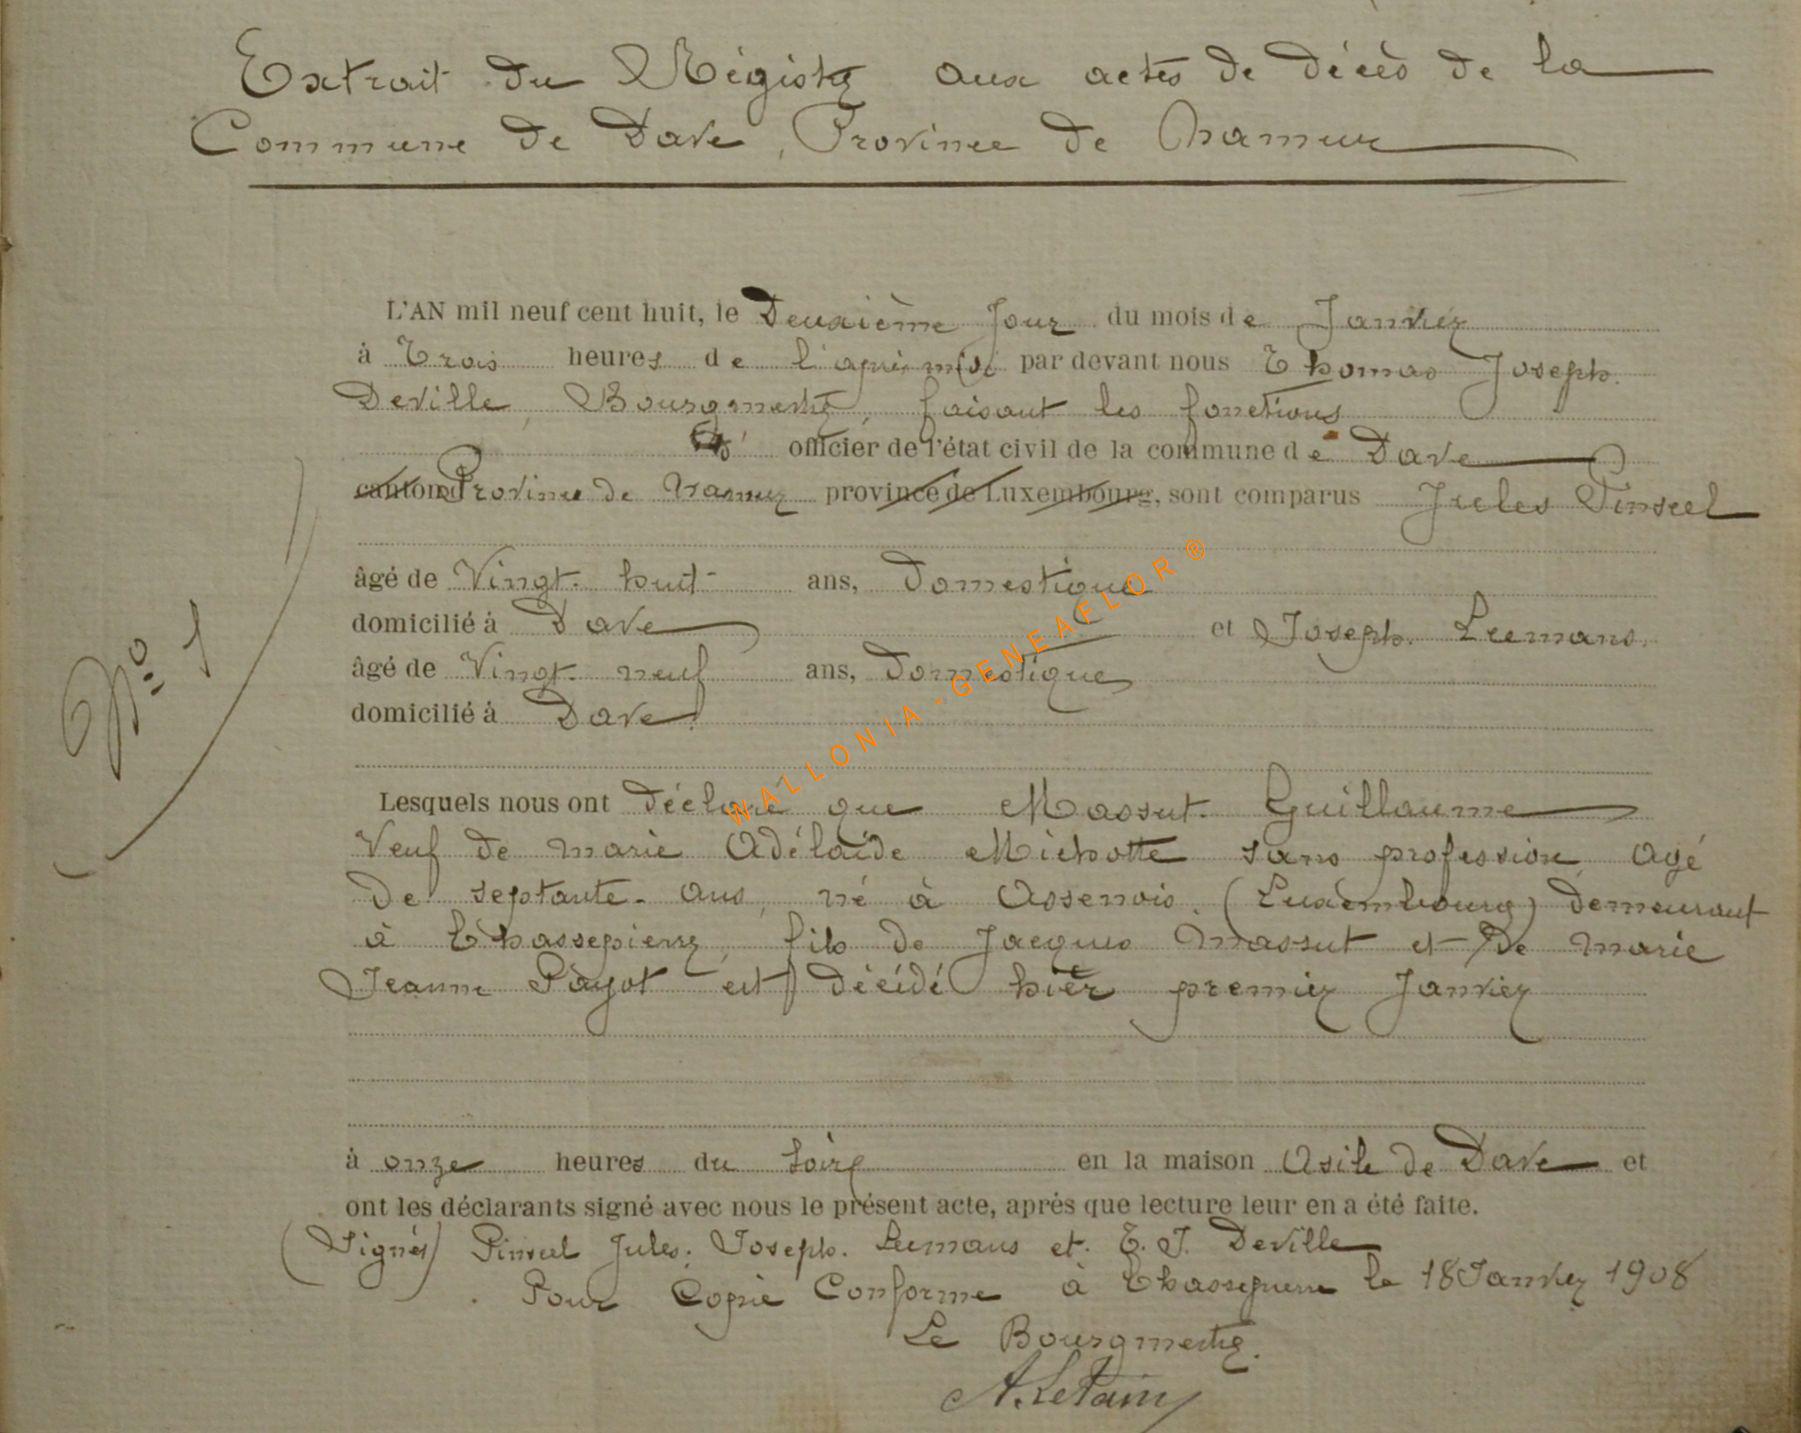 Extrait du Régistre aux actes de décès de la
Commune de Dave, Province de Namur
L'AN mil neuf cent huit, le Deuxième Jour du mois de Janvier
à Trois heures de l'après-midi par devant nous Thomas Joseph
Deville, Bourgmestre, faisant les fonctions
d' officier de l'état civil de la commune de Dave
canton d Province de Namur province de Luxembourg, sont comparus Jules Pinseel
âgé de Vingt-huit ans, Domestique
domicilié à Dave et Joseph Leemans
âgé de Vingt-neuf ans, Domestique
domicilié à Dave
N° 1
WALLONIA - GENEAFLOR ®
Lesquels nous ont déclaré que Massut Guillaume
Veuf de Marie Adélaïde Michotte sans profession, agé
de septante ans, né à Assenois (Luxembourg) demeurant
à Chassepierre, fils de Jacques Massut et de Marie
Jeanne Payot est décédé hier premier Janvier
à onze heures du soir en la maison Asile de Dave et
ont les déclarants signé avec nous le présent acte, après que lecture leur en a été faite.
(Signés) Pinseel Jules, Joseph Leemans et T. J. Deville
Pour Copie Conforme à Chassepierre le 18 Janvier 1908
Le Bourgmestre.
A. Letain